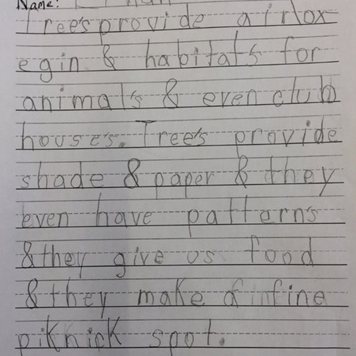 Name:
Trees provide air/ox
egin & habitats for
animals & even club
houses. Trees provide
shade & paper & they
even have patterns
& they give us food
& they make a fine
piknick spot.